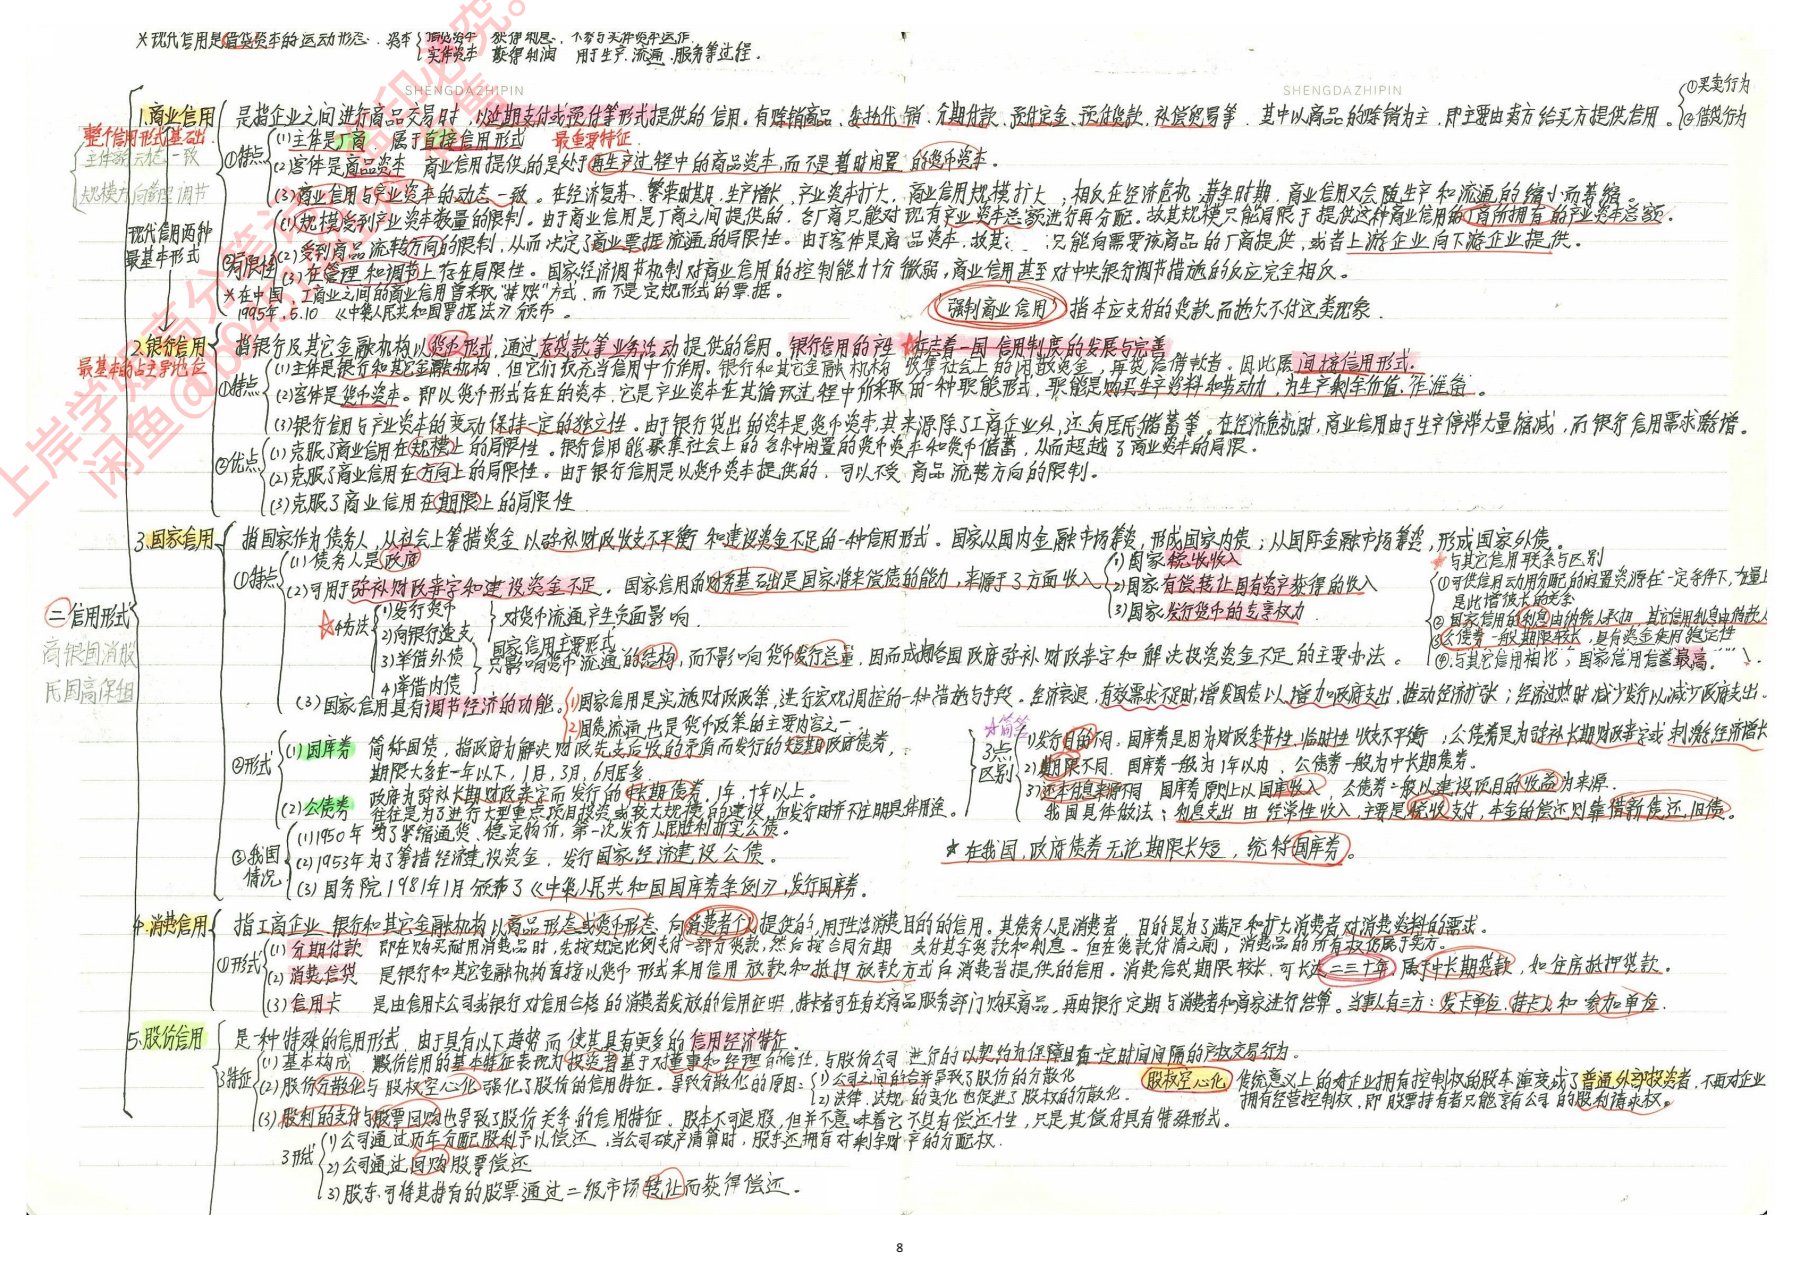 ※现代信用是借贷资本的运动形态. 资本 借贷资本 获得利息. 不参与实体资本运作.
实体资本 获得利润 用于生产.流通.服务等过程.
SHENGDAZHIPIN SHENGDAZHIPIN
1.商业信用 是指企业之间进行商品交易时, 以延期支付或预付等形式提供的信用. 有赊销商品、委托代销、分期付款、预付定金、预付货款、补偿贸易等. 其中以商品的赊销为主, 即主要由卖方给买方提供信用. ①买卖行为 ②借贷行为
整个信用形式基础.
主体客云惩一致
规模方向管理调节
①特点 (1)主体是厂商 属于直接信用形式 最重要特征.
(2)客体是商品资本 商业信用提供的是处于再生产过程中的商品资本,而不是暂时闲置的货币资本.
(3)商业信用与产业资本的动态一致. 在经济复苏、繁荣时期,生产增长,产业资本扩大,商业信用规模扩大; 相反在经济危机、萧条时期,商业信用又会随生产和流通的缩小而萎缩.
现代信用两种最基本形式
②局限性 (1)规模受到产业资本数量的限制. 由于商业信用是厂商之间提供的, 各厂商只能对现有产业资本总额进行再分配. 故其规模只能局限于提供这种商业信用的厂商所拥有的产业资本总额.
(2)受到商品流转方向的限制,从而决定了商业票据流通的局限性. 由于客体是商品资本,故其 只能向需要该商品的厂商提供, 或者上游企业向下游企业提供.
(3)在管理和调节上存在局限性. 国家经济调节机制对商业信用的控制能力十分微弱,商业信用甚至对中央银行调节措施的反应完全相反.
※在中国、工商业之间的商业信用曾采取"挂账"方式,而不是定规形式的票据.
1995年.5.10 《中华人民共和国票据法》颁布.
强制商业信用 指本应支付的货款而拖欠不付这类现象.
2.银行信用 指银行及其它金融机构以货币形式,通过存贷款等业务活动提供的信用. 银行信用的产生★标志着一国信用制度的发展与完善
最基本的占主导地位
①特点 (1)主体是银行和其它金融机构, 但它们仅充当信用中介作用. 银行和其它金融机构 收集社会上的闲散资金, 再贷给借款者. 因此属间接信用形式.
(2)客体是货币资本. 即以货币形式存在的资本,它是产业资本在其循环过程中所采取的一种职能形式,职能是购买生产资料和劳动力,为生产剩余价值作准备.
(3)银行信用与产业资本的变动保持一定的独立性. 由于银行贷出的资本是货币资本,其来源除了工商企业外,还有居民储蓄等. 在经济危机时,商业信用由于生产停滞大量缩减,而银行信用需求激增.
②优点 (1)克服了商业信用在规模上的局限性. 银行信用能聚集社会上的各未中闲置的货币资本和货币储蓄,从而超越了商业资本的局限.
(2)克服了商业信用在方向上的局限性. 由于银行信用是以货币资本提供的, 可以不受商品流转方向的限制.
(3)克服了商业信用在期限上的局限性
二.信用形式
商银国消股
民国高保租
3.国家信用 指国家作为债务人,从社会上筹措资金以弥补财政收支不平衡和建设资金不足的一种信用形式. 国家从国内金融市场筹资,形成国家内债; 从国际金融市场筹资,形成国家外债.
①特点 (1)债务人是政府
(2)可用于弥补财政赤字和建设资金不足. 国家信用的财务基础出是国家将来偿债的能力,来源于3方面收入 1)国家税收收入
2)国家有偿转让国有资产获得的收入
3)国家发行货币的专享权力.
★4方法 1)发行货币
2)向银行透支 对货币流通产生负面影响.
3)举借外债
4)举借内债 国家信用主要形式 只影响货币流通的结构,而不影响货币发行总量,因而成拥各国政府弥补财政赤字和解决投资资金不足的主要办法.
★与其它信用联系与区别
①可供信用动用分配的闲置资源在一定条件下,含量上是此增彼长的关系
②国家信用的利息由纳税人承担, 其它信用利息由借款人
③公债券一般期限较长,具有资金使用稳定性
④.与其它信用相比; 国家信用信誉最高.
(3)国家信用具有调节经济的功能. 1)国家信用是实施财政政策,进行宏观调控的一种措施与手段. 经济衰退,有效需求不足时,增发国债以增加政府支出,推动经济扩张; 经济过热时减少发行以减少政府支出.
2)国债流通也是货币政策的主要内容之一
②形式 (1)国库券 简称国债,指政府为解决财政先支后收的矛盾而发行的短期政府债券,
期限大多在一年以下, 1月, 3月, 6月居多.
(2)公债券 政府为弥补长期财政赤字而发行的中长期债券, 1年,十年以上.
往往是为了进行大型重点项目投资或较大规模的建设,但发行时并不注明具体用途.
☆简答
3点区别 1)发行目的不同. 国库券是因为财政季节性、临时性收支不平衡; 公债券是为弥补长期财政赤字或刺激经济增长
2)期限不同. 国库券一般为1年以内, 公债券一般为中长期债券.
3)还本付息来源不同 国库券原则上以国库收入, 公债券一般以建设项目的收益为来源.
我国具体做法: 利息支出由经常性收入,主要是税收支付,本金的偿还则靠借新债还旧债.
③我国情况 (1)1950年为了紧缩通货、稳定物价,第一次发行人民胜利折实公债.
(2)1953年为了筹措经济建设资金, 发行国家经济建设公债.
(3)国务院1981年1月颁布了《中华人民共和国国库券条例》,发行国库券.
★在我国,政府债券无论期限长短,统称国库券.
4.消费信用 指工商企业、银行和其它金融机构以商品形态或货币形态、向消费者个人提供的,用于生活消费目的的信用. 其债务人是消费者, 目的是为了满足和扩大消费者对消费资料的需求.
①形式 (1)分期付款 即在购买耐用消费品时,先按规定比例支付一部分货款,然后按合同分期 支付其余货款和利息. 但在货款付清之前, 消费品的所有权仍属于卖方.
(2)消费信贷 是银行和其它金融机构直接以货币形式采用信用放款和抵押放款方式向消费者提供的信用. 消费信贷期限较长,可长达二三十年, 属于中长期贷款, 如住房抵押贷款.
(3)信用卡 是由信用卡公司或银行对信用合格的消费者发放的信用证明,持卡者可在有关商品服务部门购买商品,再由银行定期与消费者和商家进行结算. 当事人有三方: 发卡单位、持卡人和参加单位.
5.股份信用 是一种特殊的信用形式, 由于具有以下趋势而使其具有更多的信用经济特征.
3特征 (1)基本构成 股份信用的基本特征表现为投资者基于对董事和经理的信任,与股份公司进行的以契约为保障且有一定时间间隔的产权交易行为.
(2)股份分散化与股权空心化强化了股份的信用特征. 导致分散化的原因: 1)公司之间的合并导致了股份的分散化
2)法律、法规的变化也促进了股权的分散化.
股权空心化 传统意义上的对企业拥有控制权的股本演变成了普通外部投资者, 不再对企业拥有经营控制权,即股票持有者只能享有公司的股利请求权.
(3)股利的支付与股票回购也导致了股份关系的信用特征. 股本不可退股,但并不意味着它不具有偿还性,只是其偿付具有特殊形式.
3形式 1)公司通过历年分配股利予以偿还,当公司破产清算时,股东还拥有对剩余财产的分配权.
2)公司通过回购股票偿还
3)股东可将其持有的股票通过二级市场转让而获得偿还.
8